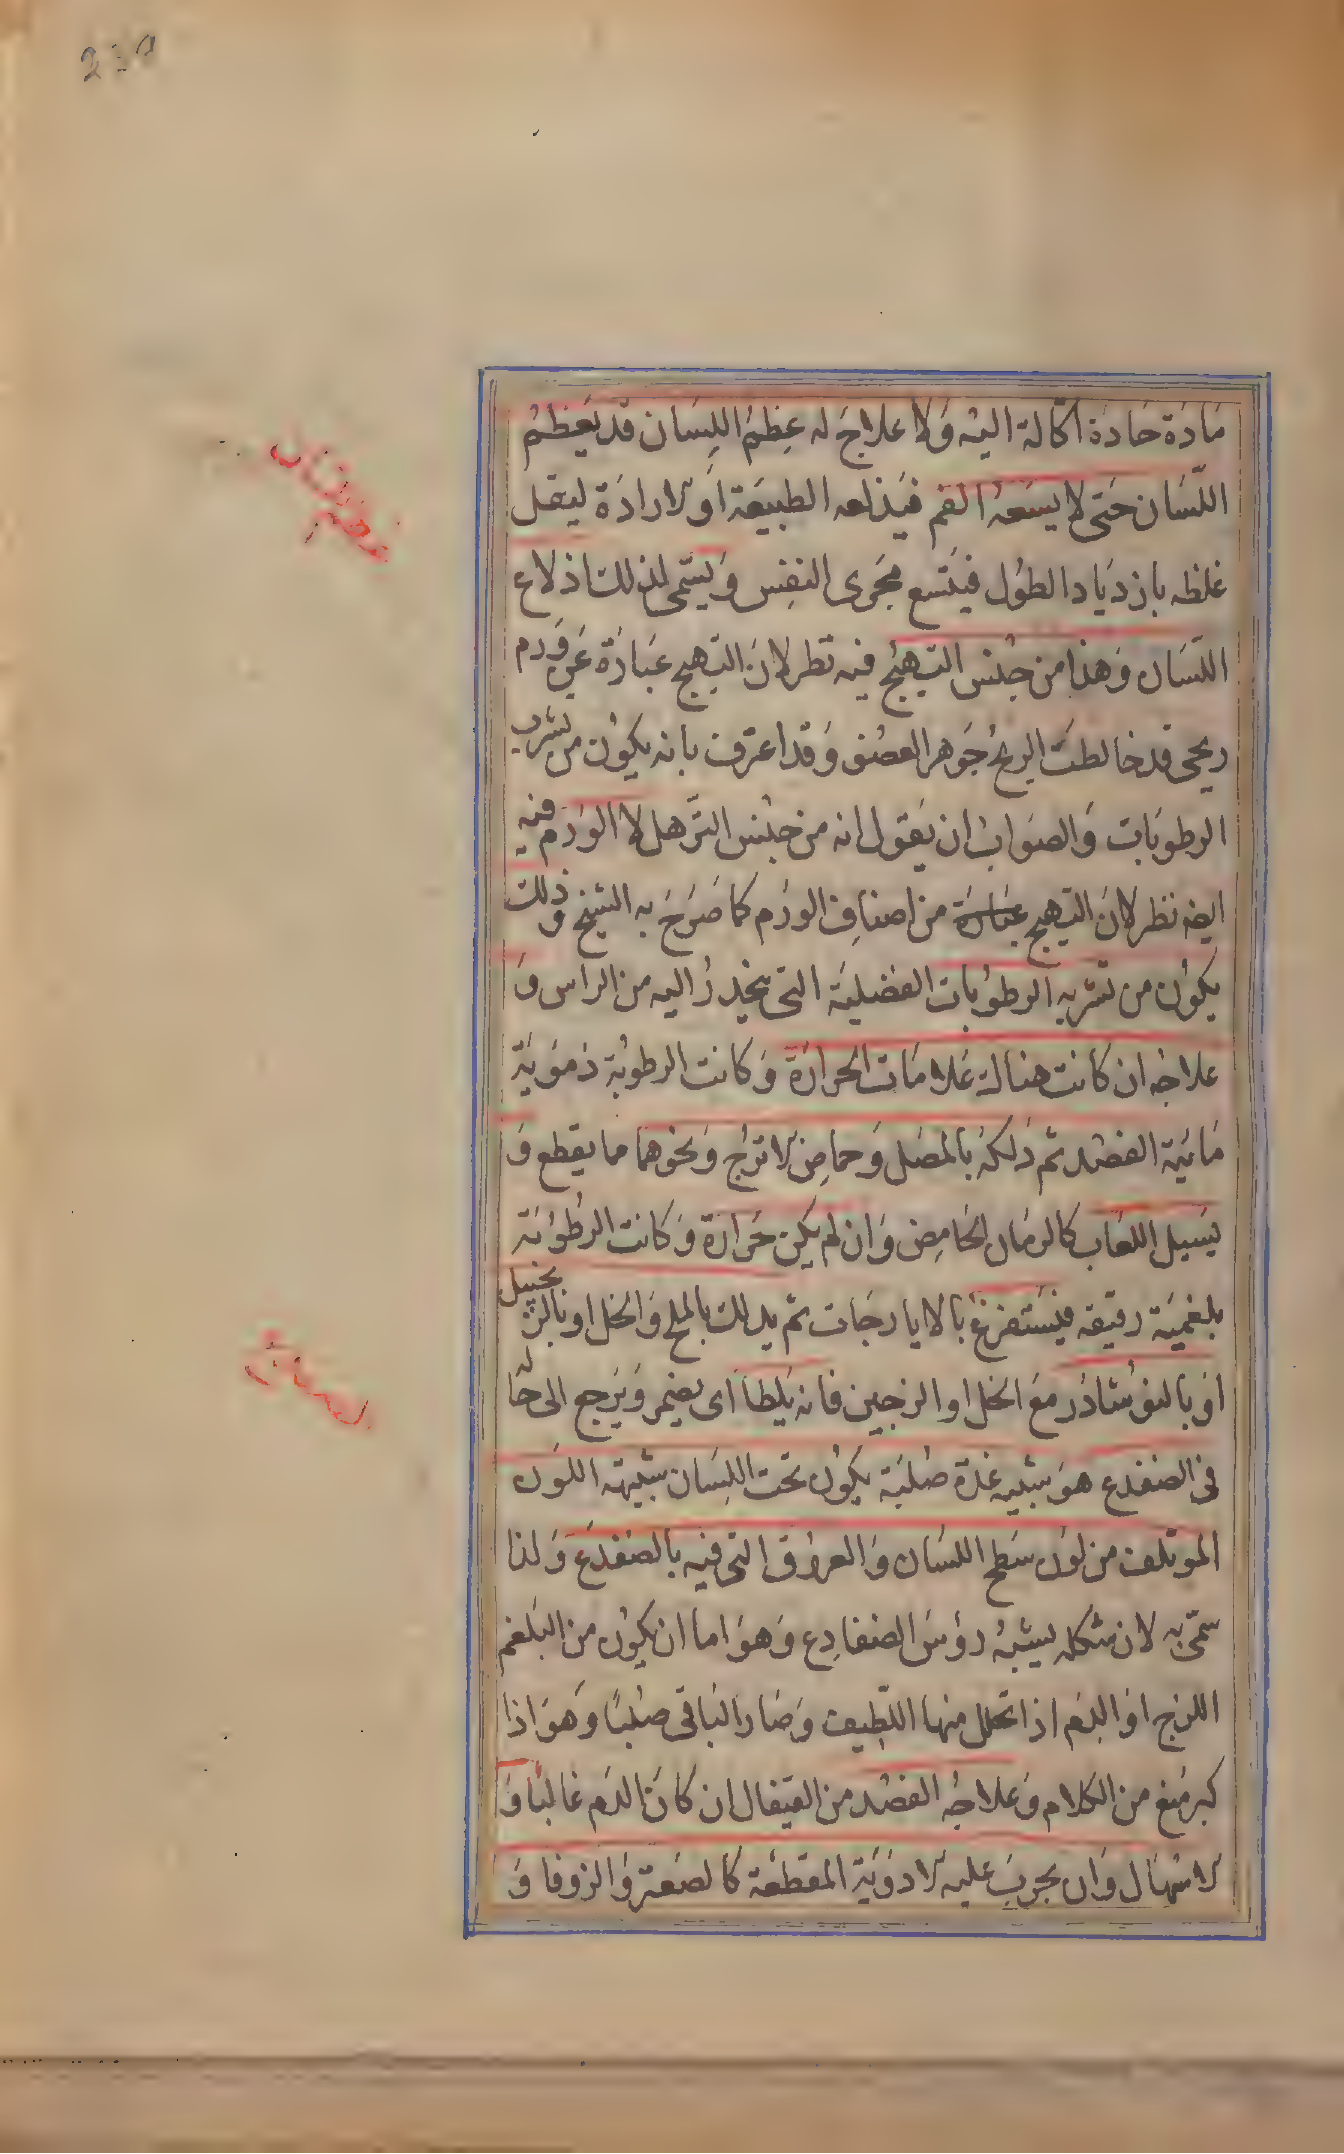 مَادَة حَادَة اكّالة اليه وَلا علاجَ له عِظمُ اللِسَان قد يَعظمُ
عظم اللسان
اللّسَان حَتى لا يسَعهُ الفم فيَذلعه الطبيعَة اَو لارادَة ليقل
غلظه بازديَاد الطوُل فيَتسع مجرى النفِس وَيسَمى لذلك اذلاع
اللسَان وَهذا من جنس التهيجُ فيه نظر لانَ التهيج عبَارَة عَن وَرم
ريحى قد خالطت الريحُ جَوهر العضو وَقد اعترف بانه يكوُن من تشرب
الرطوبَات وَالصوَابُ ان يَقول انه من جنس الترّهل لا الوَرم فيه
ايضه نظر لانَ التهيج عبَارة من اصنافِ الورم كما صَرحَ به الشيخ وَذلك
يكوُن من تشربه الرطوبات الفضليَة التى يتحدرُ اليه من الراس وَ
علاجُه ان كانت هناك عَلامَات الحَرارَة وَكانت الرطوبُة دمَويَة
مَائيَة الفصُد ثم دَلكهُ بالمصَل وَحماضِ لاترُج وَنحوهما مما يقطع وَ
يَسيل اللعَاب كالرمان الحَامِض وَان لم يكن حَرارَة وَكانت الرطوُبَة
بلغميَة رقيقه فيَستفرَغُ بالايارجَات ثم يدلك بالملح وَالخل او بالزنجبيل
اَو بالنوُشاذر مَع الخل او الزنجبين فانه يَلطا اى يضمر وَيَرجع الى حَاله
فى الضفدع هوَ شبيه غدة صُلبَة يكوُن تحت اللِسَان شبيهة اللون
الضفدع
الموتلف من لون سَطح اللسَان وَالعروُق التى فيه بالضفدَع وَلذا
سمّى به لان شكله يشبهُ رؤسَ الضفادِع وَهوَ اما ان يكوُن من البَلغم
اللزج اوَ الدَم اذا تحلل منها اللّطِيف وَصَار البَاقى صُلبًا وَهوَ اذا
كبر مَنع من الكلام وَعلاجُه الفصُد من القيفال ان كانَ الدَم غالبًا وَ
لاسُهَال وَان يجربَ عليه لادوَيَة المقطعَة كالصَعترَ وَالزوفا وَ